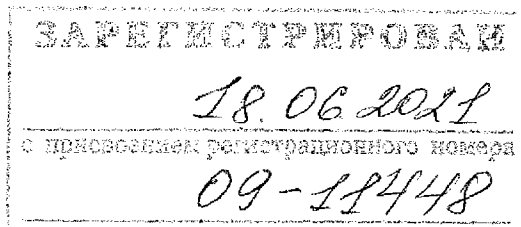 ЗАРЕГИСТРИРОВАН
18.06.2021
с присвоением регистрационного номера
09-11448